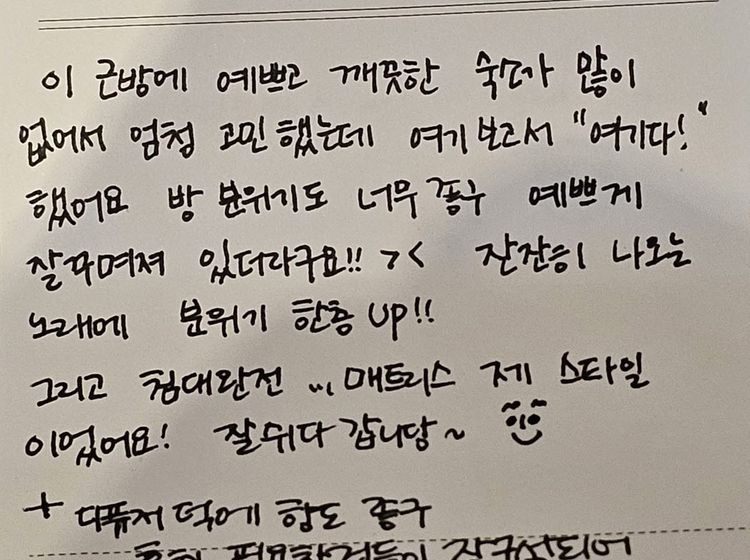 이 근방에 예쁘고 깨끗한 숙소가 많이
없어서 엄청 고민했는데 여기보고서 "여기다!"
했어요 방 분위기도 너무 좋구 예쁘게
잘꾸며져 있더라구요!! ><  잔잔히 나오는
노래에 분위기 한층 up!!
그리고 침대완전 ... 매트리스 제 스타일
이었어요! 잘쉬다 갑니당~
+ 디퓨저 덕에 향도 좋구